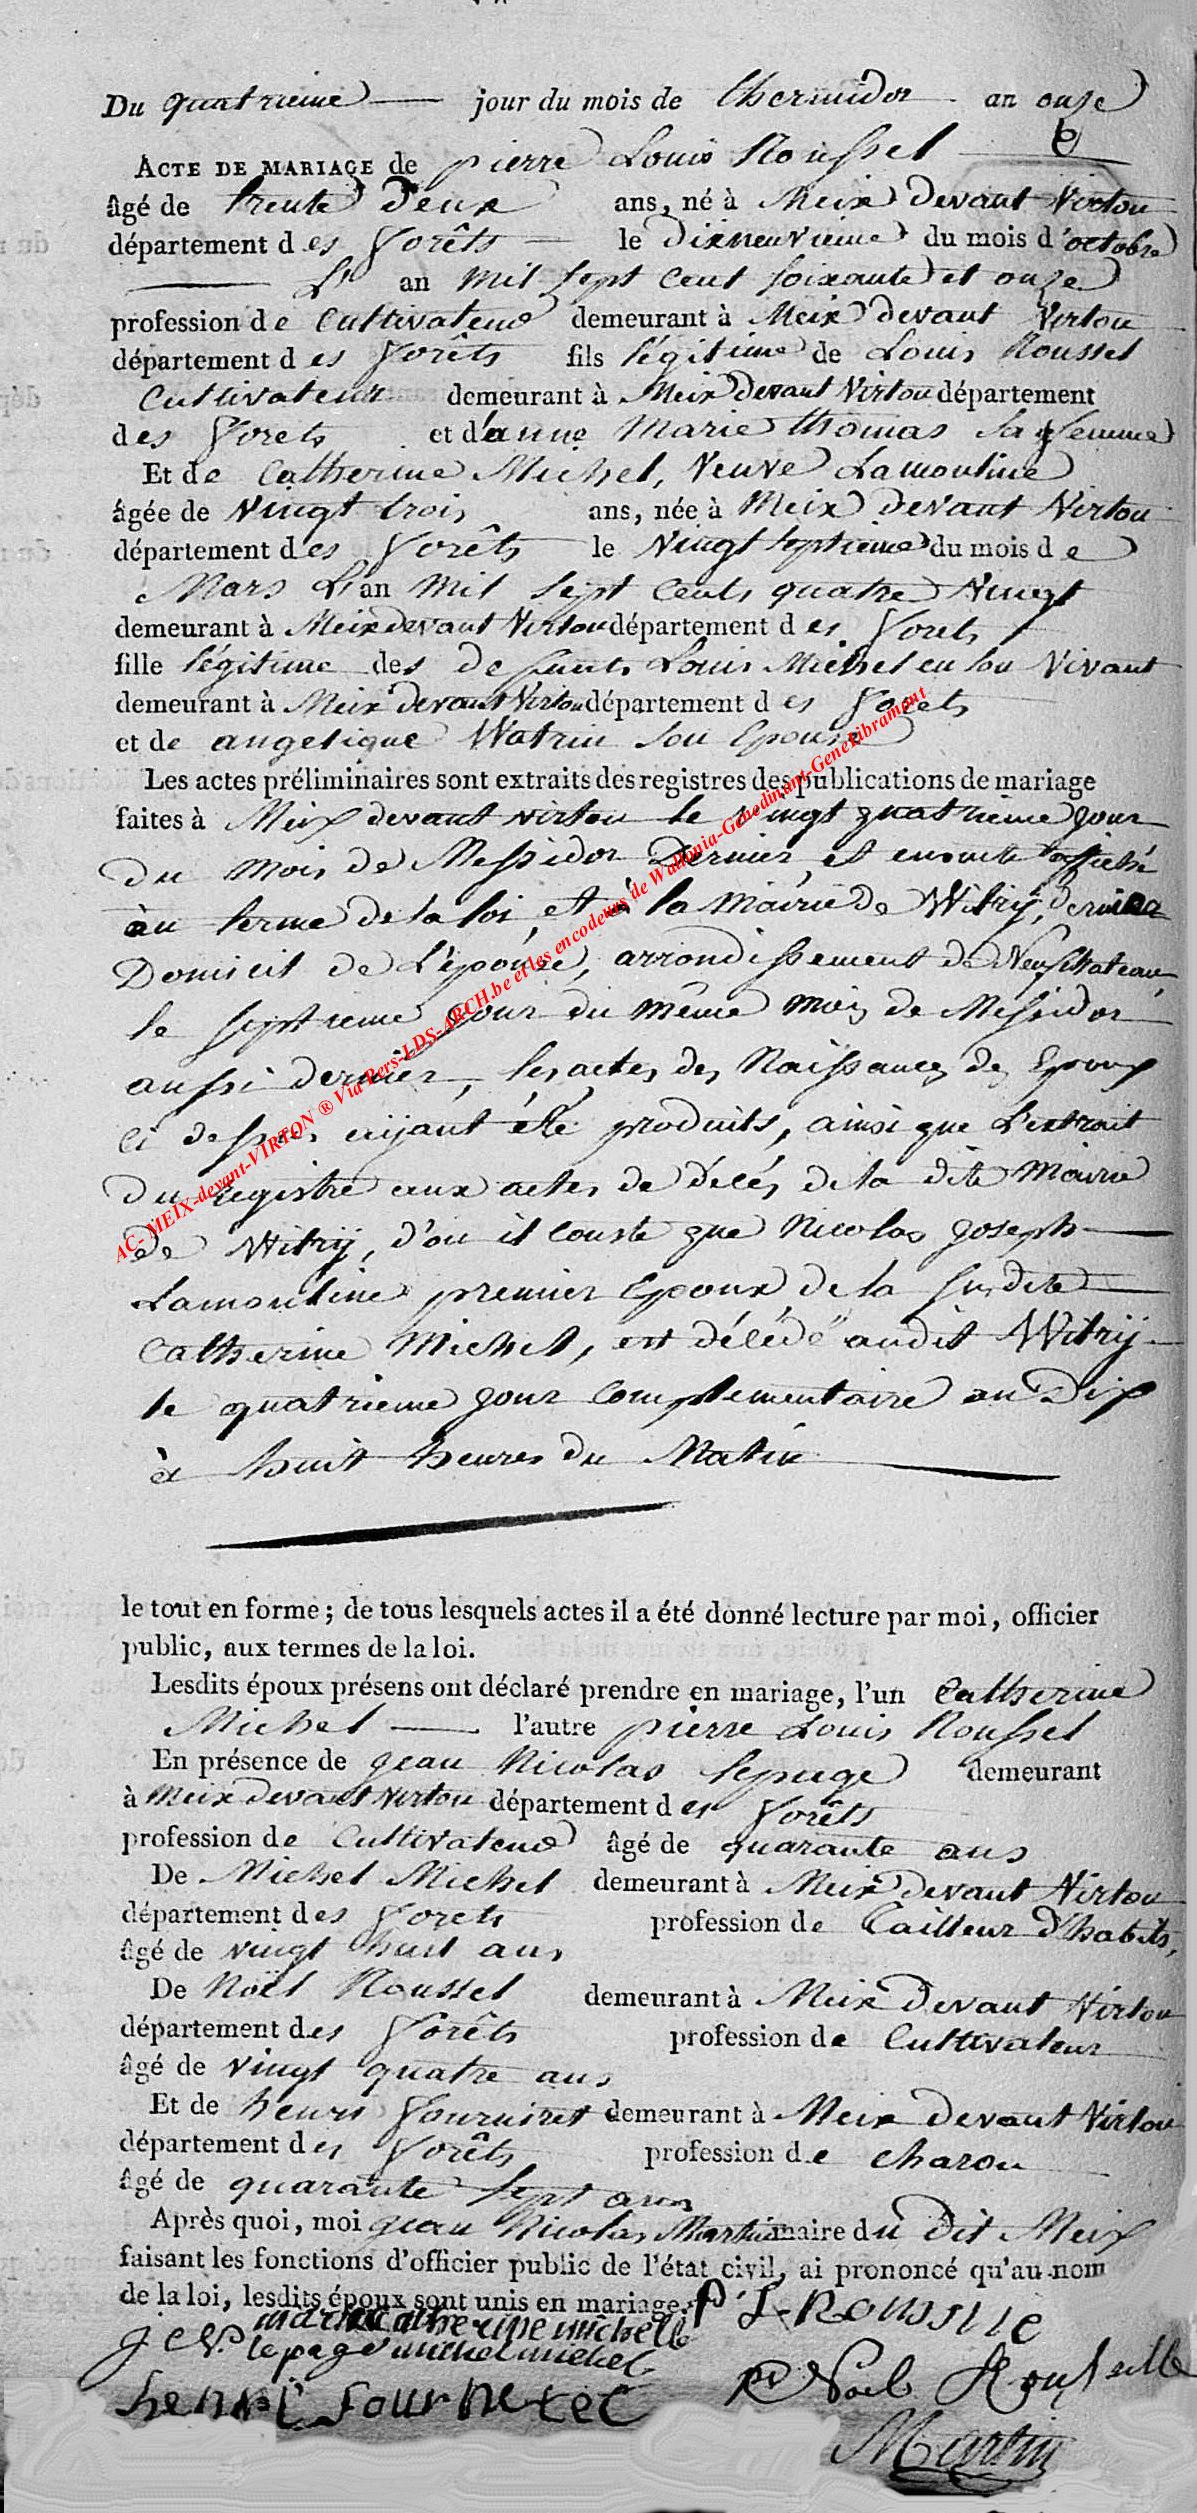 Du quatrieme jour du mois de thermidor an onze
ACTE DE MARIAGE de pierre Louis Roussel
âgé de trente deux ans, né à Meix devant Virton
département des forêts le dixneuvieme du mois d'octobre
L' an mil sept cent soixante et onze
profession de cultivateur demeurant à Meix devant Virton
département des forêts fils légitime de Louis Roussel
Cultivateur demeurant à Meix devant Virton département
des forets et d'anne Marie thomas sa femme
Et de Catherine Michel, veuve Lamouline
âgée de vingt trois ans, née à Meix devant Virton
département des forêts le vingt septieme du mois de
Mars L'an mil sept cents quatre vingt
demeurant à Meix devant Virton département des forets
fille légitime des defunts Louis Michel en son vivant
demeurant à Meix devant Virton département des forets
et de angelique Watrin son Epouse
Les actes préliminaires sont extraits des registres des publications de mariage
faites à Meix devant virton le vingt quatrieme jour
du mois de Messidor Dernier, et ensuite affiché
au terme de la loi, et à la Mairie de Witrÿ, dernier
Domicil de L'épousée, arrondissement de Neufchateau,
le septieme jour du même mois de Messidor
aussi dernier, les actes des Naissances des Epoux
ci dessus aÿant été produits, ainsi que L'extrait
du registre aux actes de décés de la dite Mairie
de Witrÿ, d'ou il conste que Nicolas Joseph
Lamouline premier Epoux de la susdite
Catherine Michel, est décédé audit Witrÿ
le quatrieme jour complementaire an Dix
à huit heures du Matin
le tout en forme; de tous lesquels actes il a été donné lecture par moi, officier
public, aux termes de la loi.
Lesdits époux présens ont déclaré prendre en mariage, l'un Catherine
Michel l'autre pierre Louis Roussel
En présence de Jean Nicolas lepage demeurant
à Meix devant Virton département des forêts
profession de Cultivateur âgé de quarante ans
De Michel Michel demeurant à Meix devant Virton
département des forets profession de Tailleur d'habits,
âgé de vingt huit ans
De Noël Roussel demeurant à Meix devant Virton
département des forêts profession de Cultivateur
âgé de vingt quatre ans
Et de henri fourniret demeurant à Meix devant Virton
département des forêts profession de charon
âgé de quarante sept ans
Après quoi, moi Jean Nicolas Martin maire du dit Meix
faisant les fonctions d'officier public de l'état civil, ai prononcé qu'au nom
de la loi, lesdits époux sont unis en mariage. P L Rousselle
marie catherine michelle
lepage michel michel
Noel Rousselle
henri fourneret
Martin
AC- MEIX-devant-VIRTON ® Via Pers-LDS-ARCH.be et les encodeurs de Wallonia-Genedinant-Genelibramont